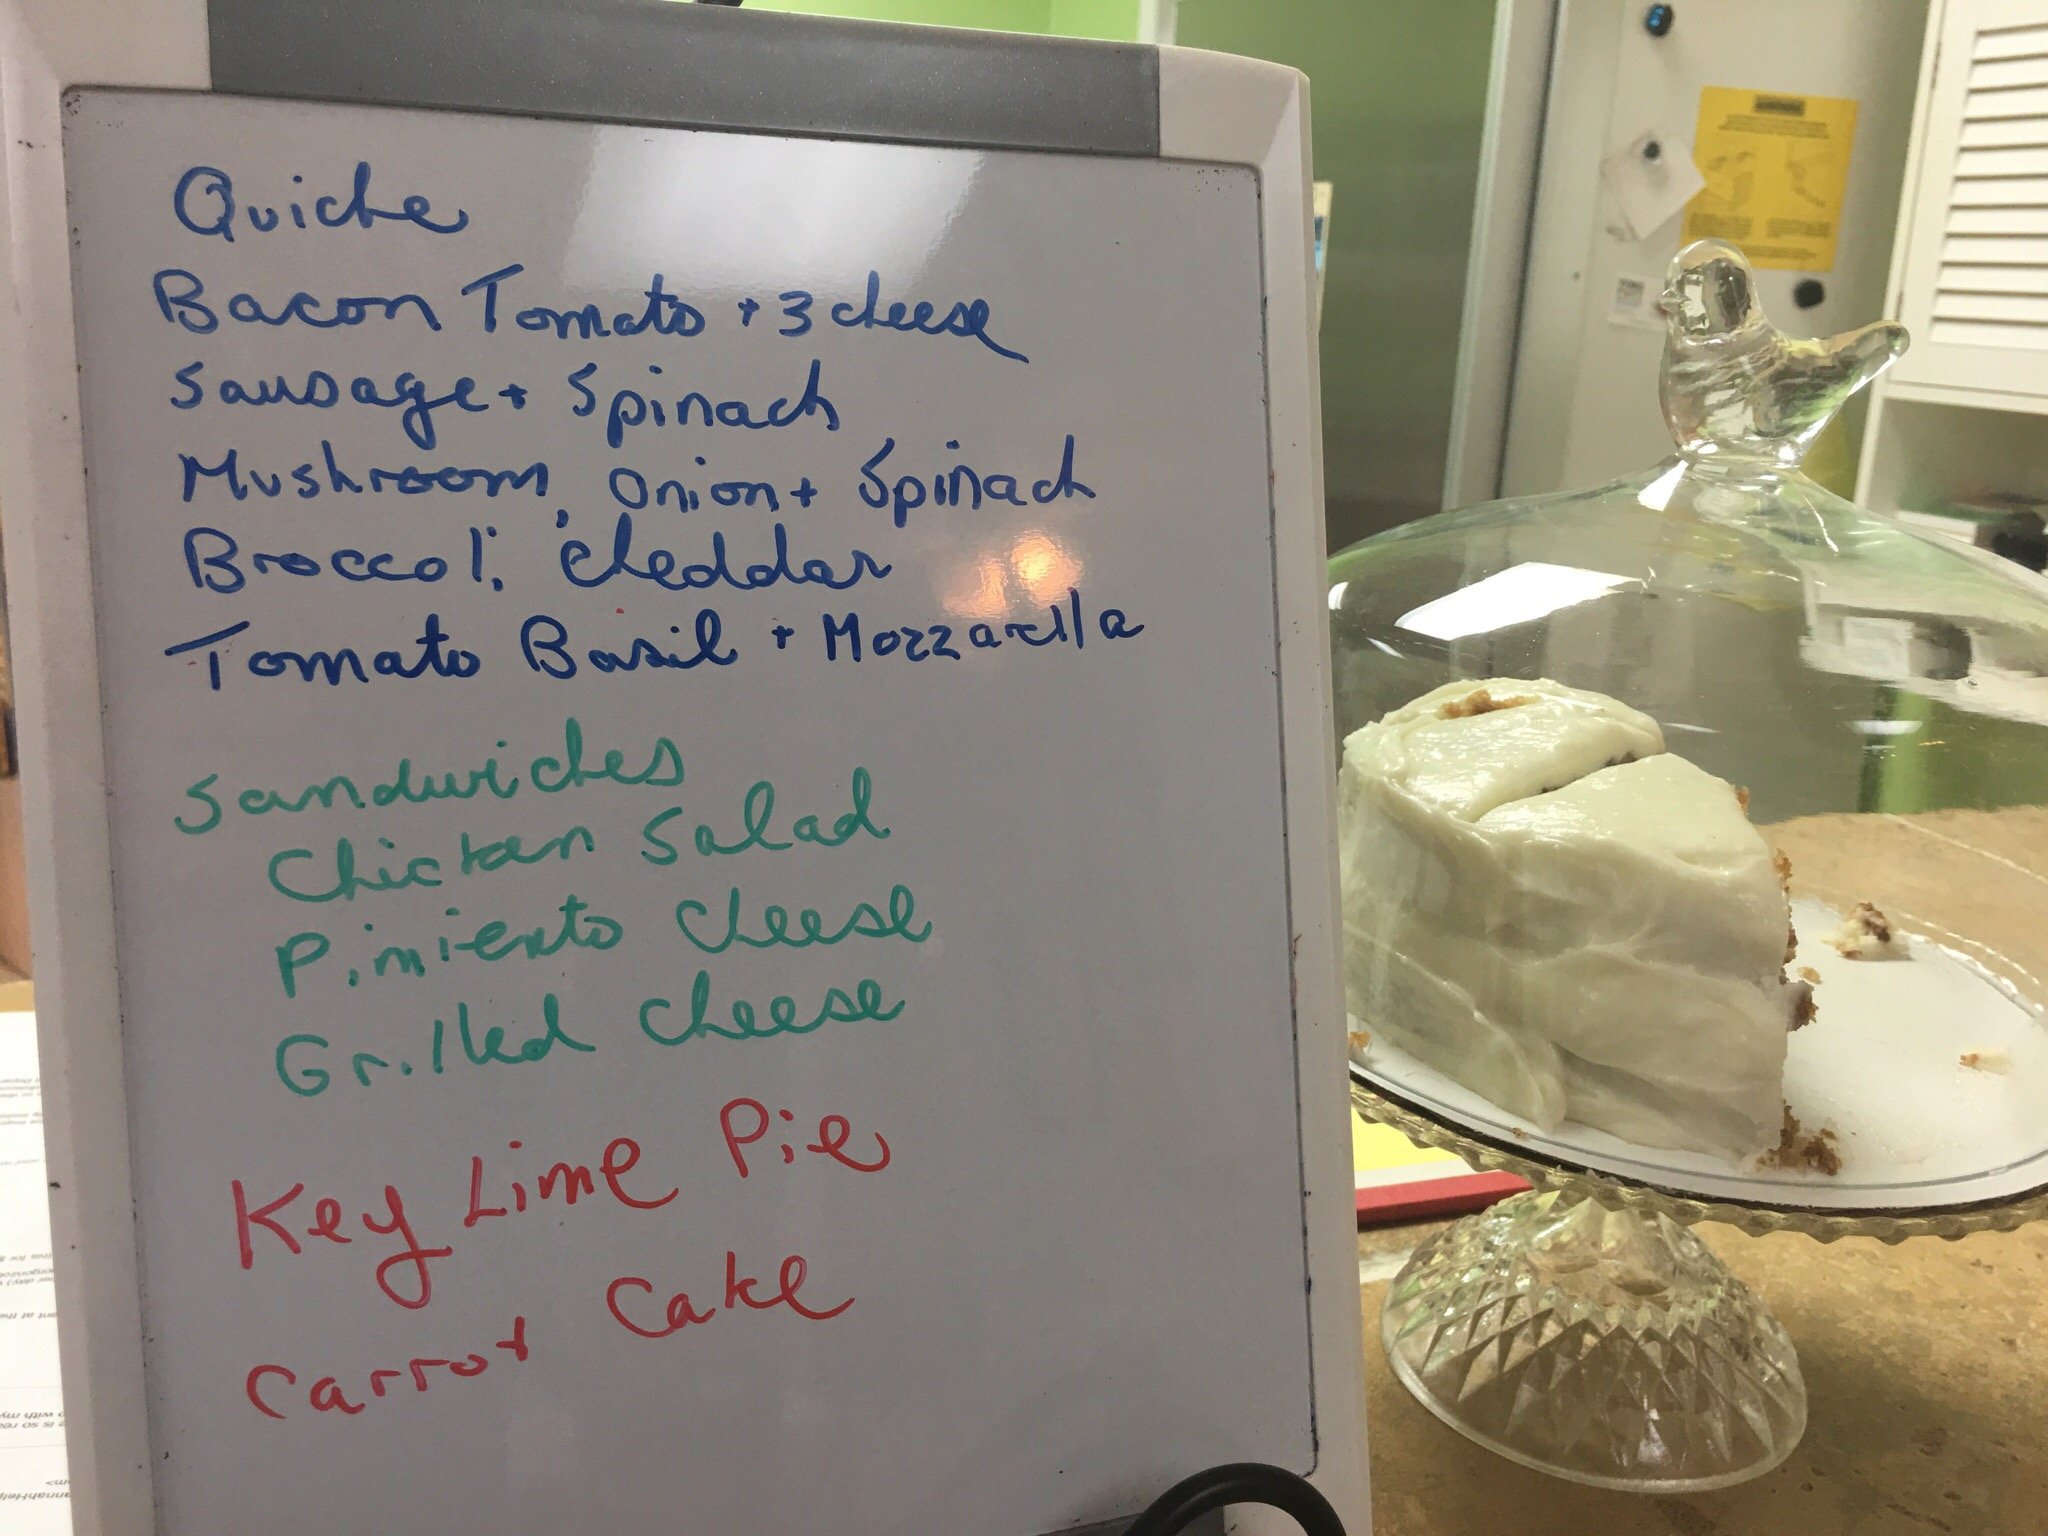 Quiche
Bacon Tomato + 3 cheese
Sausage + Spinach
Mushroom, Onion + Spinach
Broccoli, cheddar
Tomato Basil + Mozzarella
Sandwiches
Chicken Salad
Pimiento Cheese
Grilled Cheese
Key Lime Pie
Carrot Cake